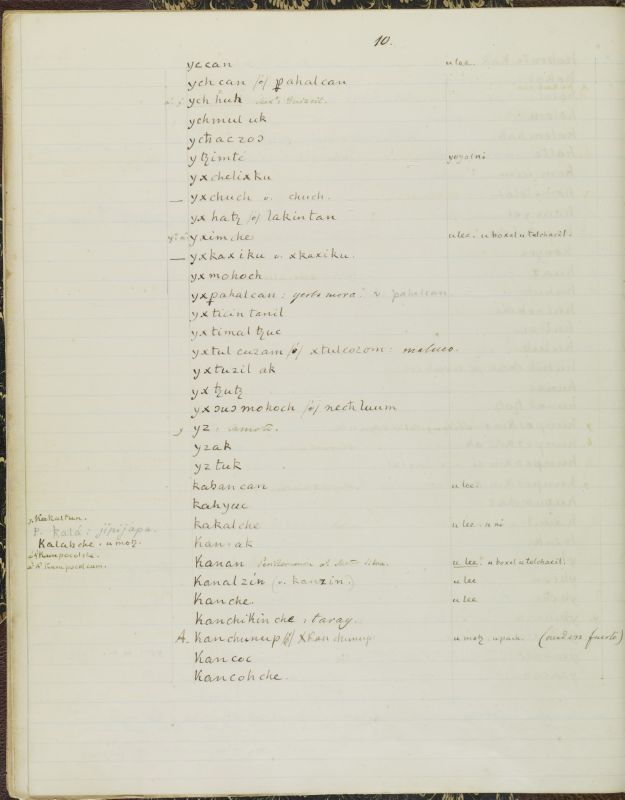 10.
yccan u lec.
ych can /o/ pahalcan
ych huh
ychmul uk
ychaczoɔ
ytzimte yoyalni
yxchelixku
— yxchuch v. chuch.
yx hatz /o/ lakintan
yximche u lec. u boxel u tolchacil.
— yxkaxiku v. xkaxiku.
yxmohoch
yxpahalcan: yerba mora. v. pahalcan
yxticin tanil
yxtimal tzuc
yxtul cuzam /o/ xtulcozom:
yxtuzil ak
yx tzutz
yxɔuɔ mohoch /o/ nechluum
yz:
yzak
yztuk
kaban can u lec.
kahyuc
kakalche u lec. u ni
Kan-ak
Kanan u lec. u boxel u tolchacil.
Kanalzin (v. kanzin.) u lec
Kanche. u lec
Kanchikinche: taray.
A. Kanchunup /o/ Xkanchunup u motz. u pach. (fuerte)
Kancoc
Kancohche.
Kakaltun.
P. Kalá: jipijapa.
Kalabche. u motz.